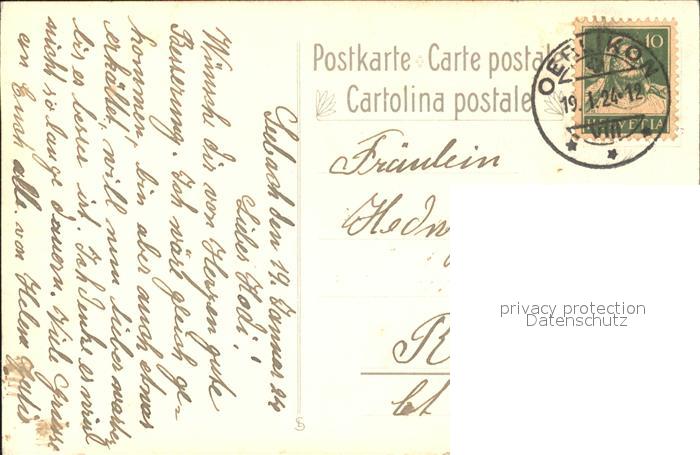 Postkarte Carte postale
Cartolina postale
OERLIKON
19. I. 24-12
VIII
10
HELVETIA
Seebach den 19. Januar 24
Liebes Hedi!
Wünsch dir von Herzen gute
Besserung. Ich wär gleich ge-
kommen, bin aber auch etwas
erkältet, will nun lieber warten
bis es besser ist. Ich denke es wird
nicht so lange dauern. Viele Grüsse
an Euch alle von Helen
Fräulein
Hedw
privacy protection
Datenschutz